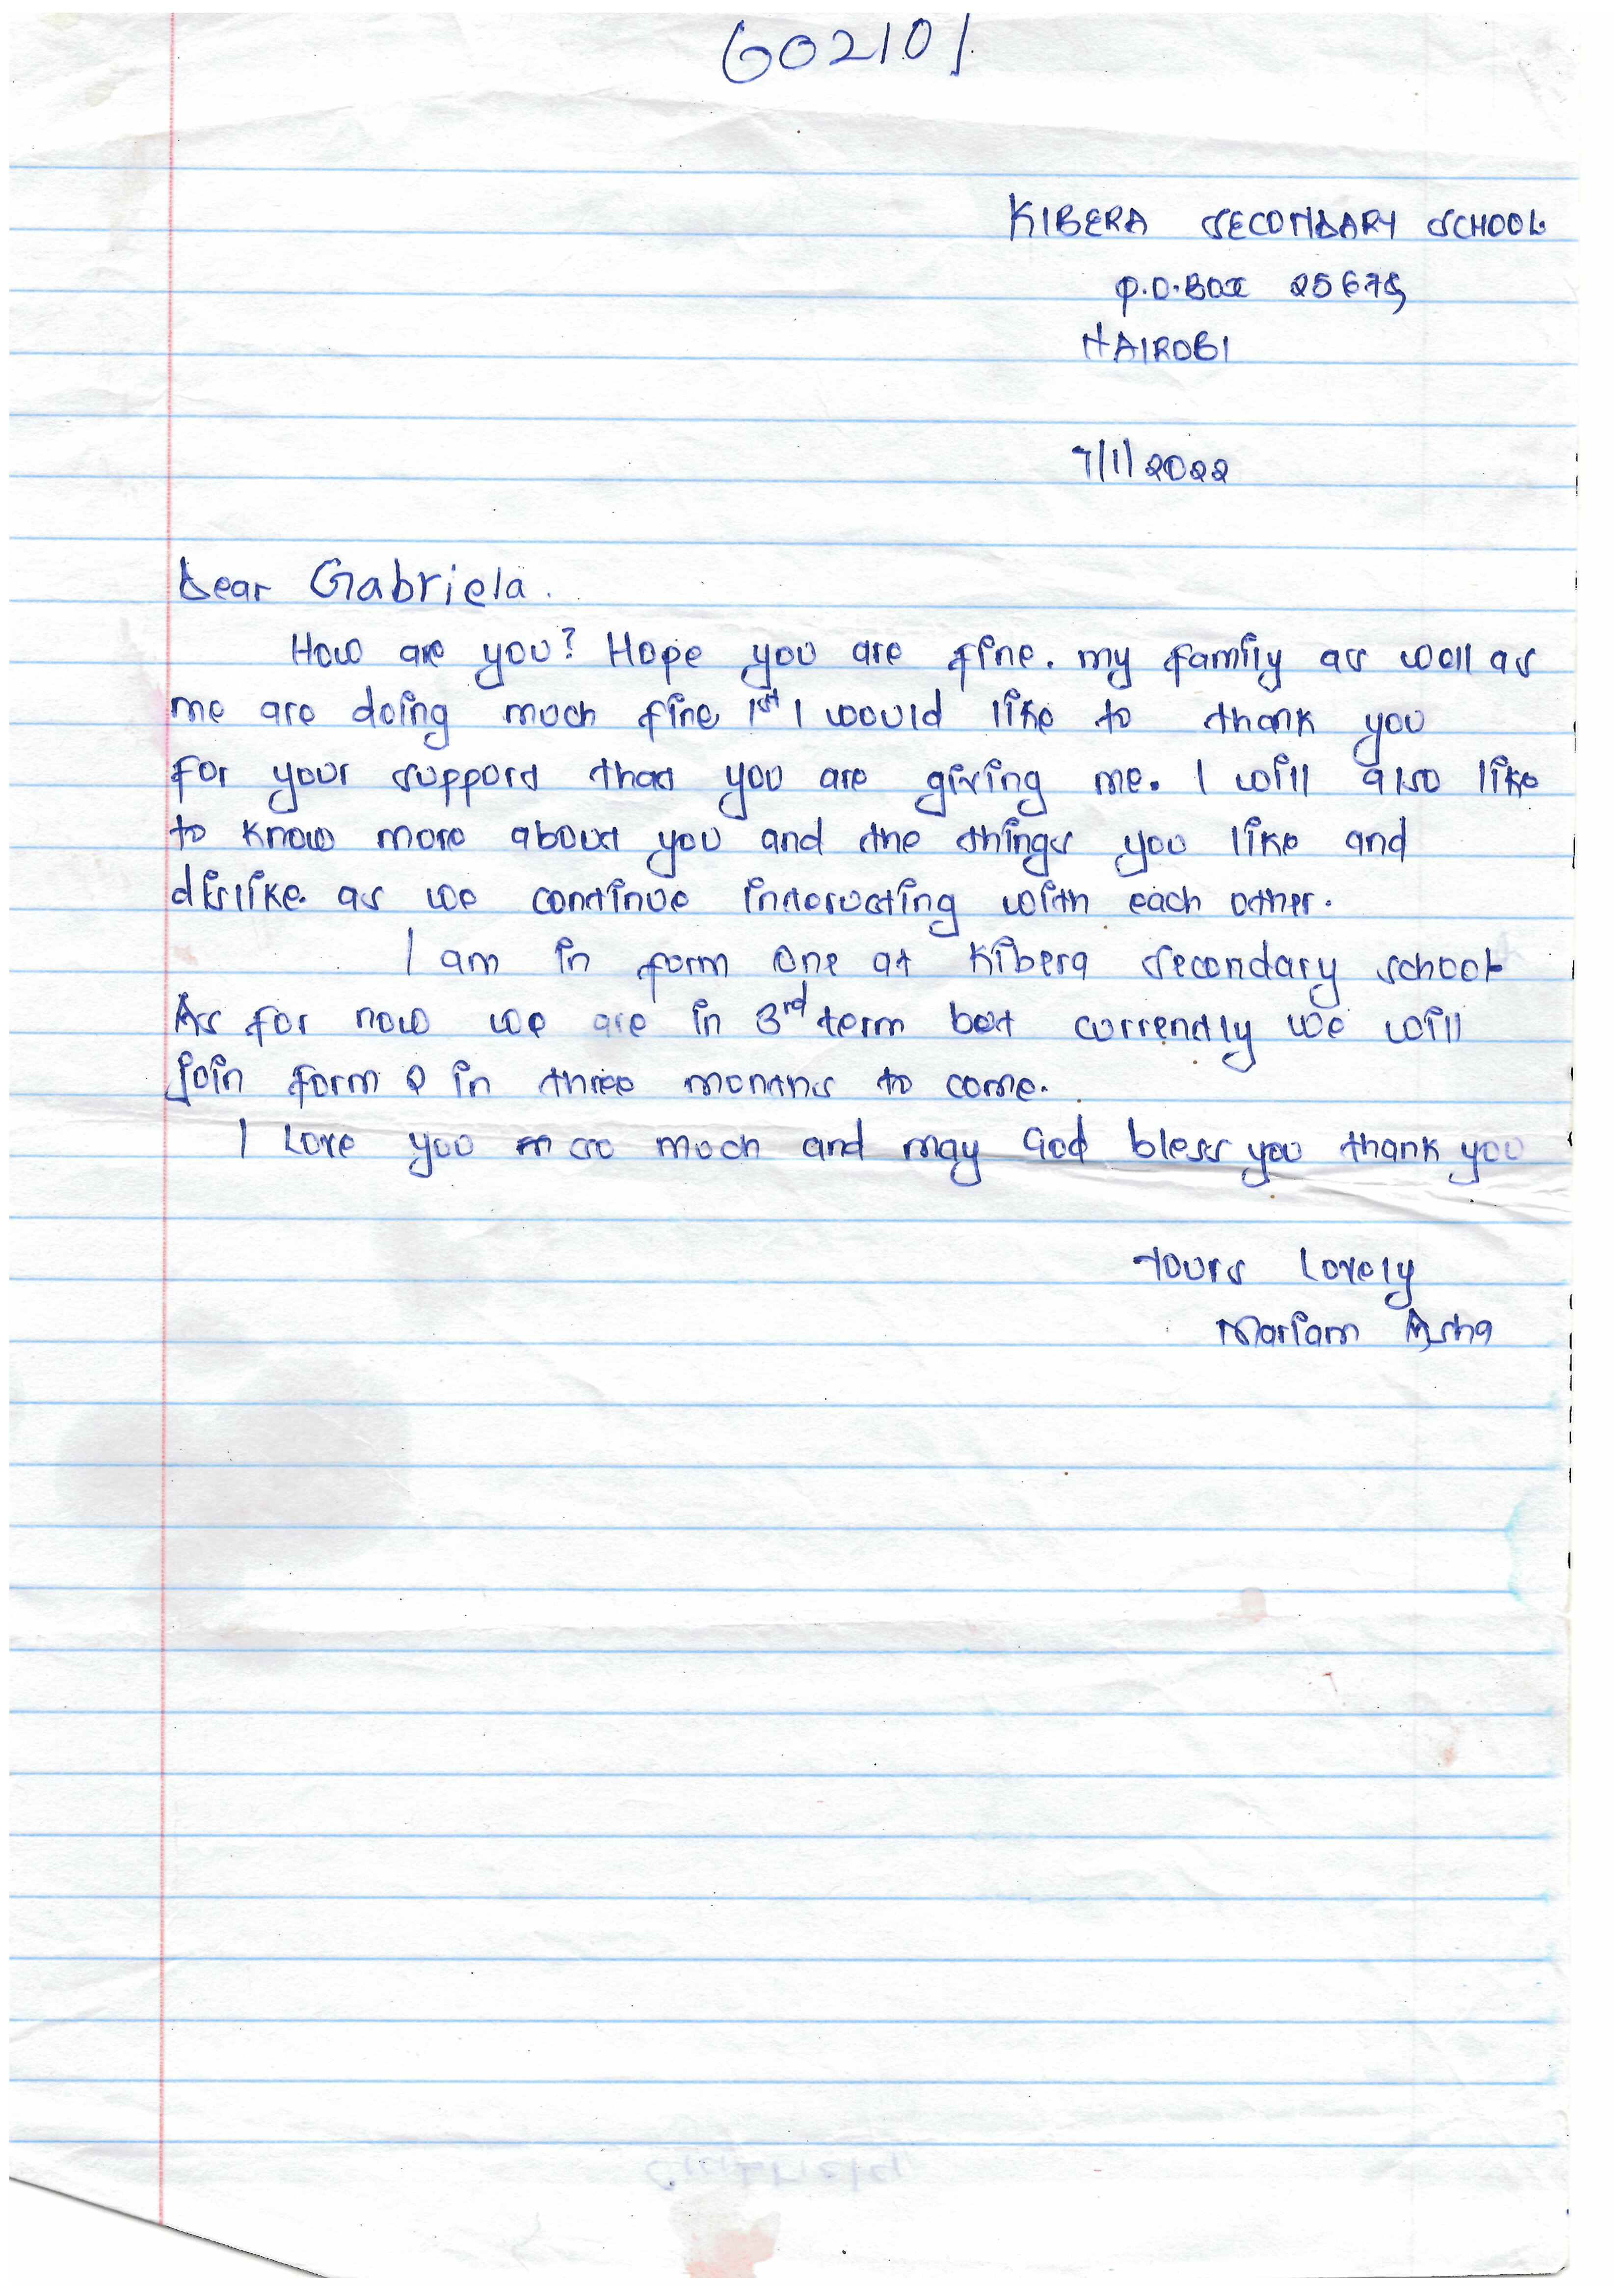 602101
KIBERA SECONDARY SCHOOL
P.O.BOX 25675
NAIROBI
7/1/2022
Dear Gabriela.
How are you? Hope you are fine. my family as well as
me are doing much fine, 1st I would like to thank you
for your support that you are giving me. I will also like
to know more about you and the things you like and
dislike. as we continue interacting with each other.
I am in form one at Kibera Secondary school
As for now we are in 3rd term but currently we will
join form 2 in three months to come.
I Love you so much and may God bless you thank you
Yours Lovely
Mariam Asha